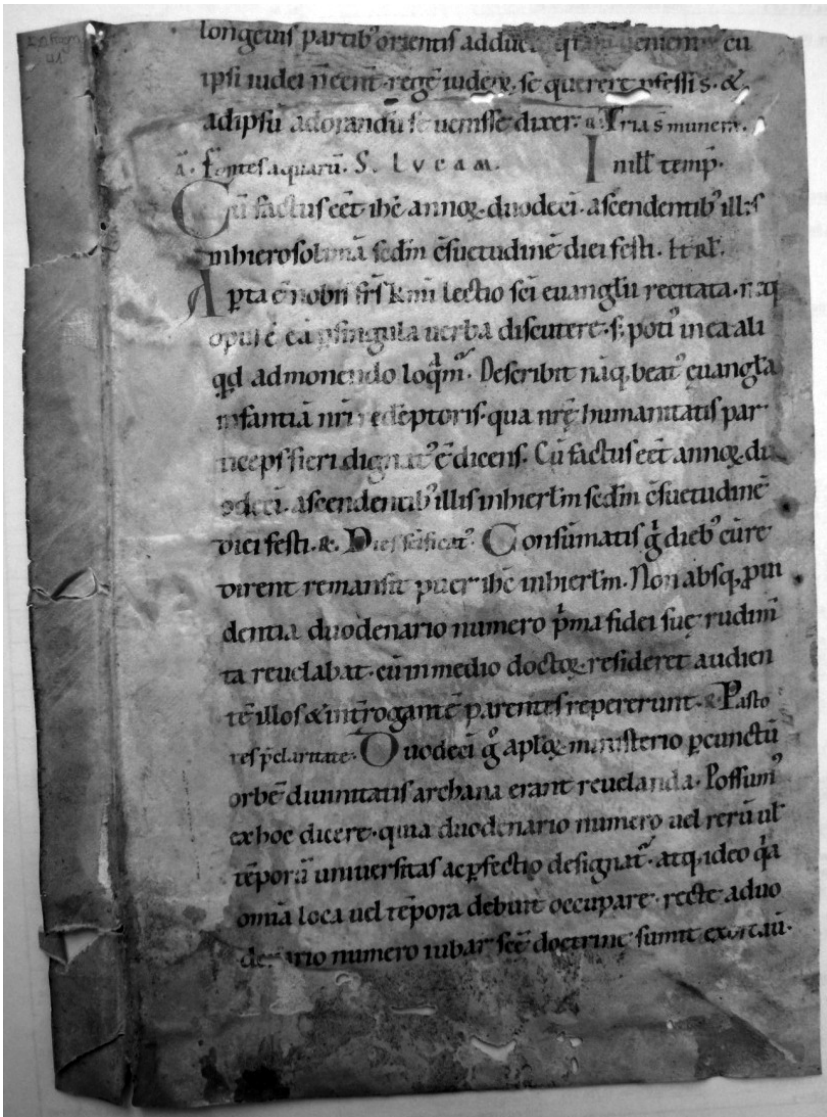 longevis partib᾽ orientis adduc
ipsi iudei n̄ eēnt regē iudeoꝝ se querere ꝓfessi s. &
adipsū adorandū se uenisse dixer. a. Tria s̄ munera.
a. fontes aquarū. S. Lvcam. In ill̄ temp̄.
Cū factus eēt ihc̄ annoꝝ duodeci. ascendentib᾽ illis
inhierosolimā scdm̄ c̄suetudinē diei festi. & rl̄.
Aꝑta ē nobis fr̄s km̄i lectio sc̄i euangl̄ii recitata. n̄ aq
opus ē eā ꝑ singula uerba discutere. s; poti᾽ in ea ali
qd̄ admonendo loqm̄᾽. Describit nāq, beat᾽ euangl̄a
infantiā nr̄i redēptoris. qua nrę̄ humanitatis par
ticeps fieri dignat᾽ ē dicens. Cū factus eēt annoꝝ du
odeci. ascendentib᾽ illis inhierl̄m scdm̄ c̄suetudinē
diei festi. &. Dies sc̄ificat᾽. Consūmatis g̊ dieb᾽ cū re
dirent remansit puer ihc̄ inhierl̄m. Non absq, ꝓui
dentia duodenario numero pͥma fidei suę rudim̄
ta reuelabat. cū in medio doctoꝝ resideret audien
tē illos & int̄rogantē parentes repererunt. &. Pasto
res p̄ claritate. Duodeci g̊ apl̄oꝝ ministerio ꝑ cunctū
orbē diuinitatis archana erant reuelanda. Possum᾽
ex hoc dicere. quia duodenario numero uel rerū ul̄
tēporū uniuersitas ac ꝑfectio designat᾽. atq, ideo qͣ
omīa loca uel tēpora debuit occupare. recte a duo
denario numero iubar scē̄ doctrine sumit exortū.